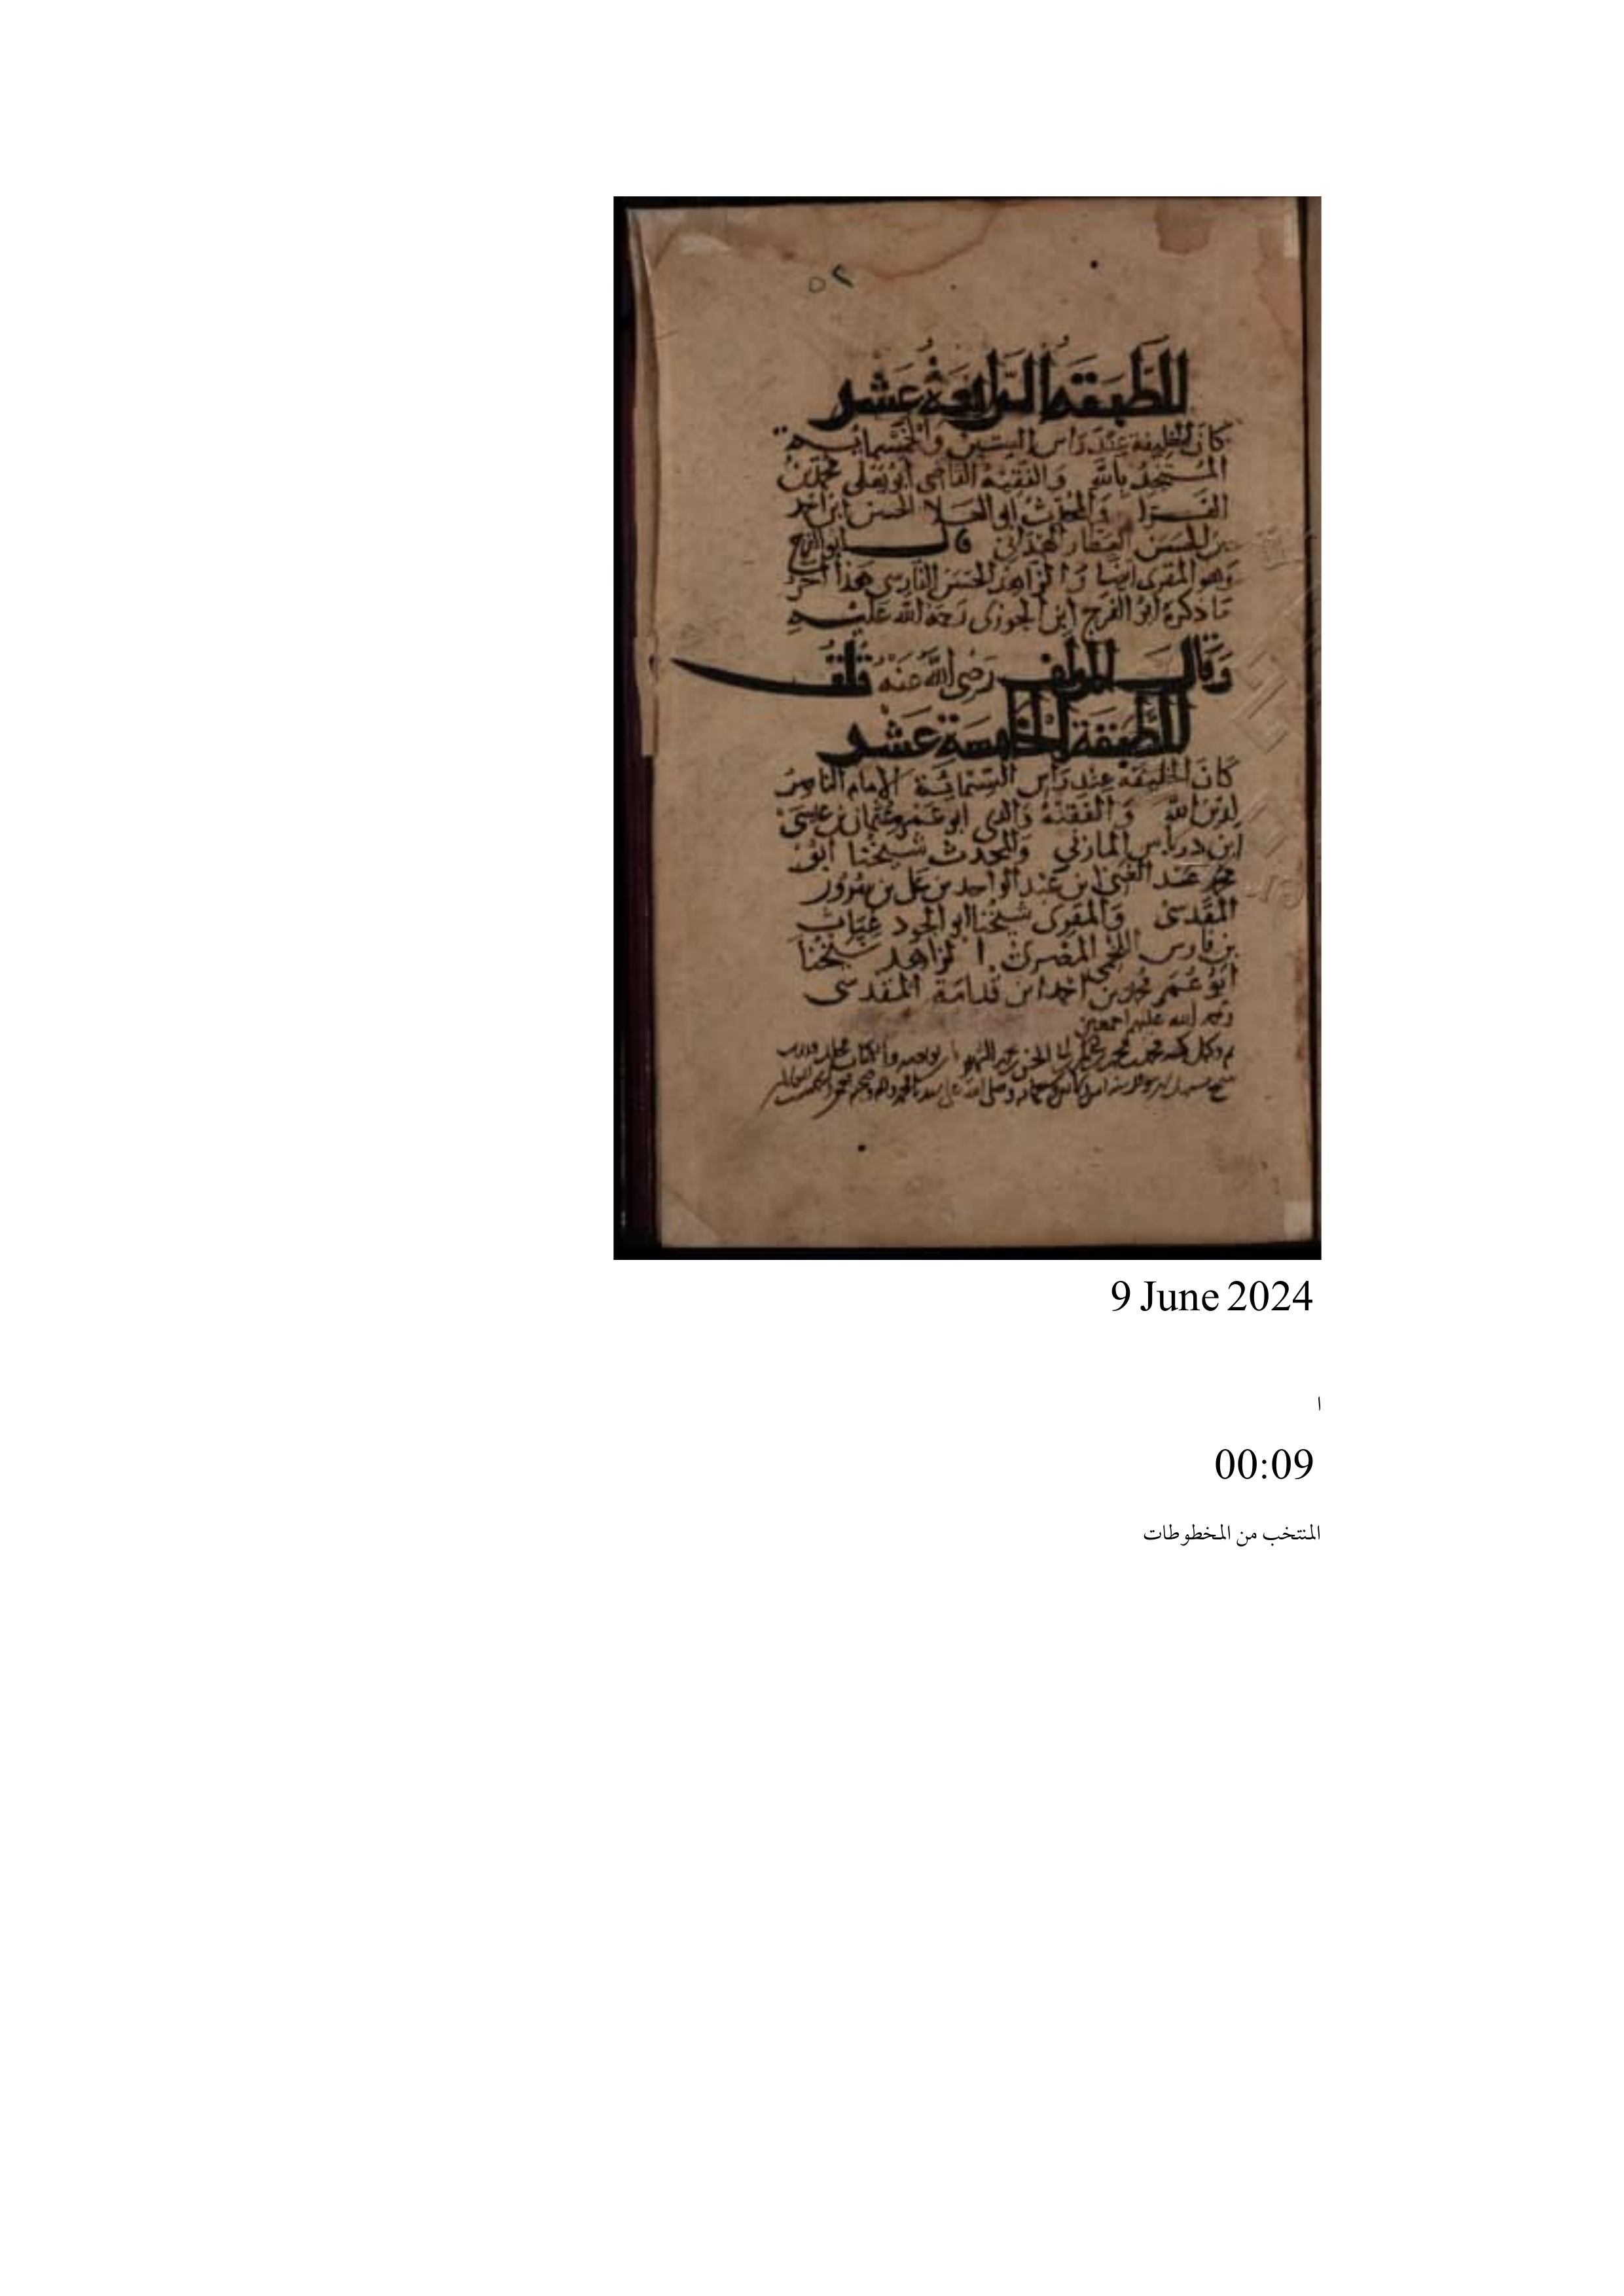 ٥٢
الطبقة الرابعة عشر
كان الخليفة عند رأس الستين والخمسمائة
المستنجد بالله والفقيه القاضي أبو يعلى محمد بن
الفرا والمحدث أبو العلا الحسن ابن أحمد
بن الحسن العطار الهمذاني قال أبو الفرج
وهو المقرى أيضا والزاهد الحسن الفارسي هذا آخر
ما ذكره أبو الفرج ابن الجوزي رحمة الله عليه
وقال المؤلف رضي الله عنه قلت
الطبقة الخامسة عشر
كان الخليفة عند رأس الستمائة الإمام الناصر
لدين الله والفقيه والدي أبو عمرو عثمان بن عيسى
ابن درباس الماراني والمحدث شيخنا أبو
محمد عبد الغني ابن عبد الواحد بن علي بن سرور
المقدسي والمقرى شيخنا أبو الجود غياث
بن فارس اللخمي المصري الزاهد شيخنا
أبو عمر محمد بن أحمد ابن قدامة المقدسي
رحمة الله عليهم أجمعين
وصلى الله على سيدنا محمد وآله وصحبه
9 June 2024
ا
00:09
المنتخب من المخطوطات